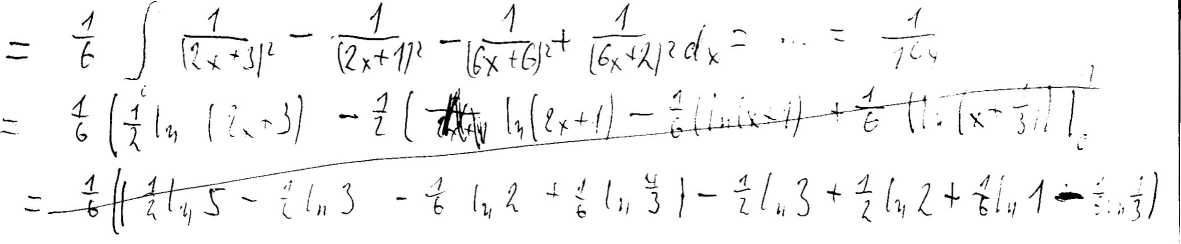 = 1/6 ∫ 1/(2x+3)² − 1/(2x+1)² − 1/(6x+6)² + 1/(6x+2)² dx = ... =
= 1/6 (1/2 ln (2x+3) − 1/2 ( ln(2x+1) − 1/6 (ln(x+1) + 1/6 (ln (x+1/3)) |
= 1/6 (( 1/2 ln 5 − 1/2 ln 3 − 1/6 ln 2 + 1/6 ln 4/3 ) − 1/2 ln 3 + 1/2 ln 2 + 1/6 ln 1 −